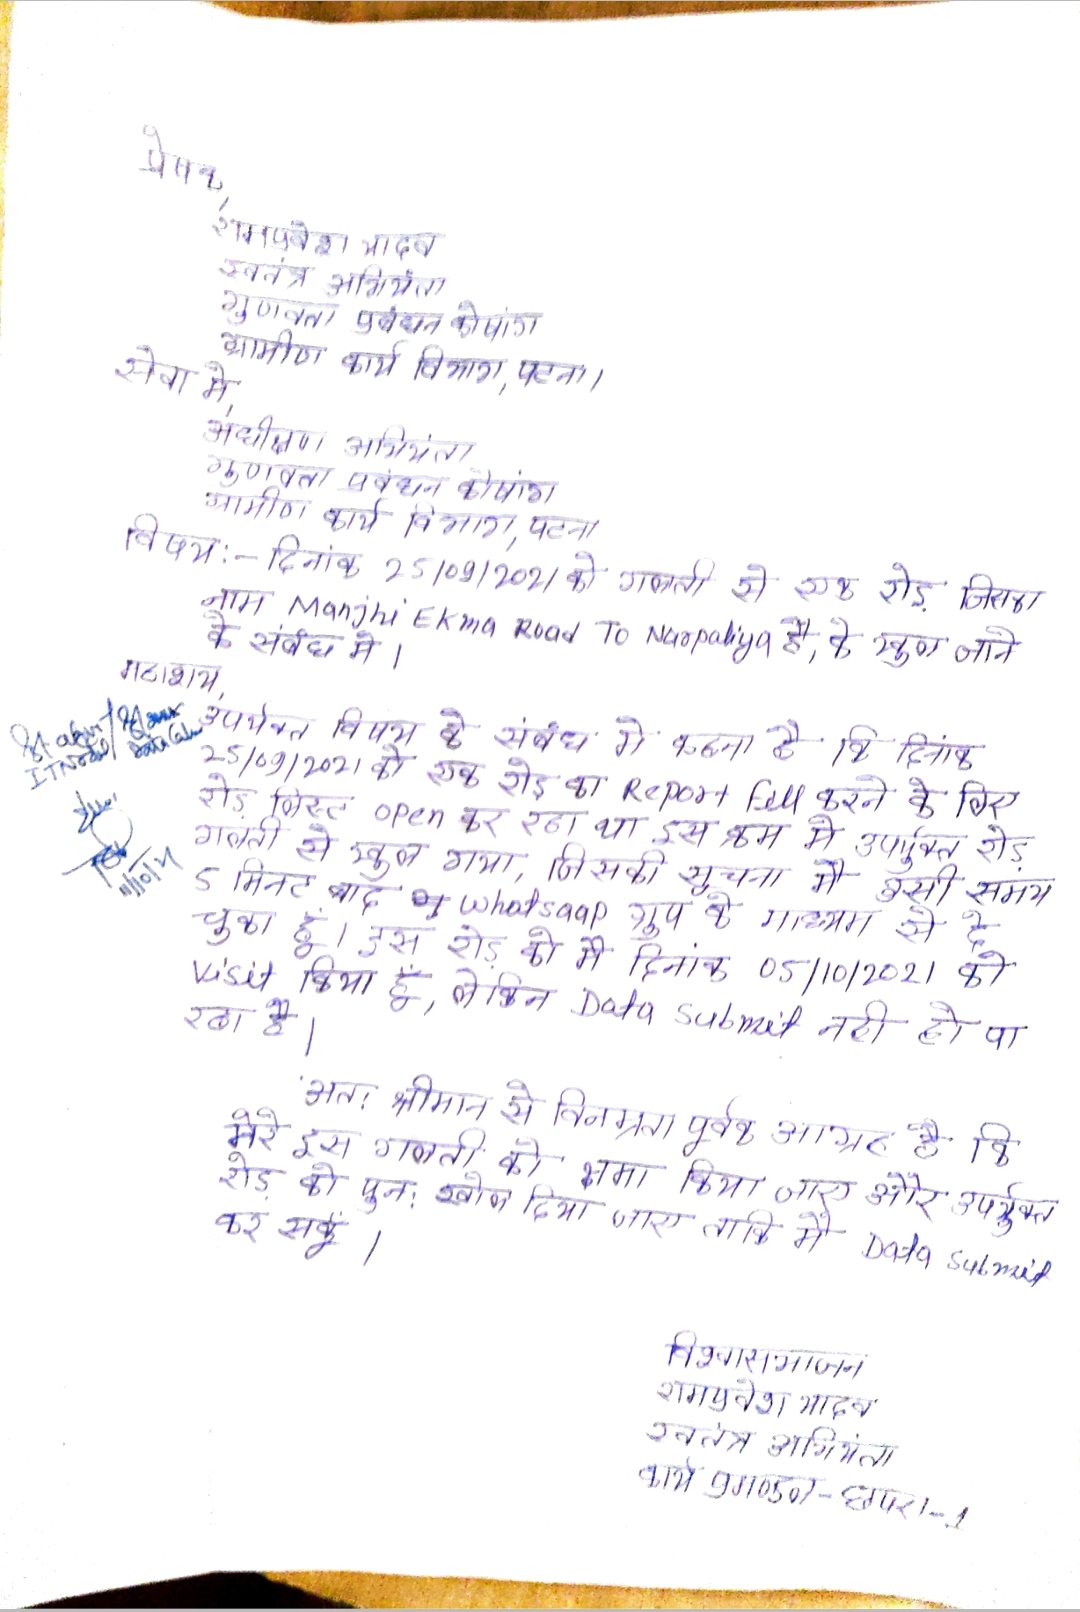 प्रेषक,
रामप्रवेश यादव
स्वतंत्र अभियंता
गुणवता प्रबंधन कोषांग
ग्रामीण कार्य विभाग, पटना।
सेवा में,
अधीक्षण अभियंता
गुणवता प्रबंधन कोषांग
ग्रामीण कार्य विभाग, पटना
विषय:- दिनांक 25/09/2021 को गलती से एक रोड़ जिसका
नाम Manjhi Ekma Road To Narpaliya है, के खुल जाने
के संबंध मे।
महाशय,
उपर्यक्त विषय के संबंध मे कहना है कि दिनांक
25/09/2021 को एक रोड़ का Report fill करने के लिए
रोड़ लिस्ट open कर रहा था इस क्रम मे उपर्युक्त रोड़
गलती से खुल गया, जिसकी सूचना मै उसी समय
5 मिनट बाद whatsaap ग्रुप के माध्यम से दे
चुका हूँ। इस रोड़ को मै दिनांक 05/10/2021 को
visit किया हूँ, लेकिन Data submit नही हो पा
रहा है।
अतः श्रीमान से विनम्रता पूर्वक आग्रह है कि
मेरे इस गलती को क्षमा किया जाए और उपर्युक्त
रोड़ को पुनः खोल दिया जाए ताकि मै Data submit
कर सकूं।
IT Nodal / Data
11/10/21
विश्वासभाजन
रामप्रवेश यादव
स्वतंत्र अभियंता
कार्य प्रमण्डल-छपरा-1